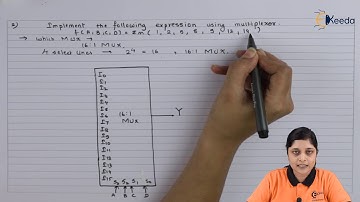 Ekeeda
3) Implement the following expression using multiplexer.
f (A, B, C, D) = Σm ( 1, 2, 5, 6, 9, 12, )
→ which MUX →
16:1 MUX.
4 select lines → 2⁴ = 16 , 16:1 MUX.
I0
E1
I2
I3
I4
I5
I6
I7
I8
I9
I10
I11
I12
I13
I14
I15
16:1
MUX
Y
S3 S2 S1 S0
A B C D